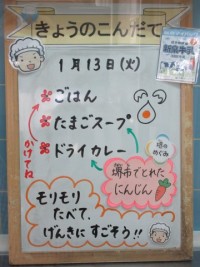 きょうのこんだて
1月13日(火)
ごはん
たまごスープ
ドライカレー
かけてね
堺のめぐみ
堺市でとれたにんじん
モリモリ
たべて、
げんきにすごそう!!